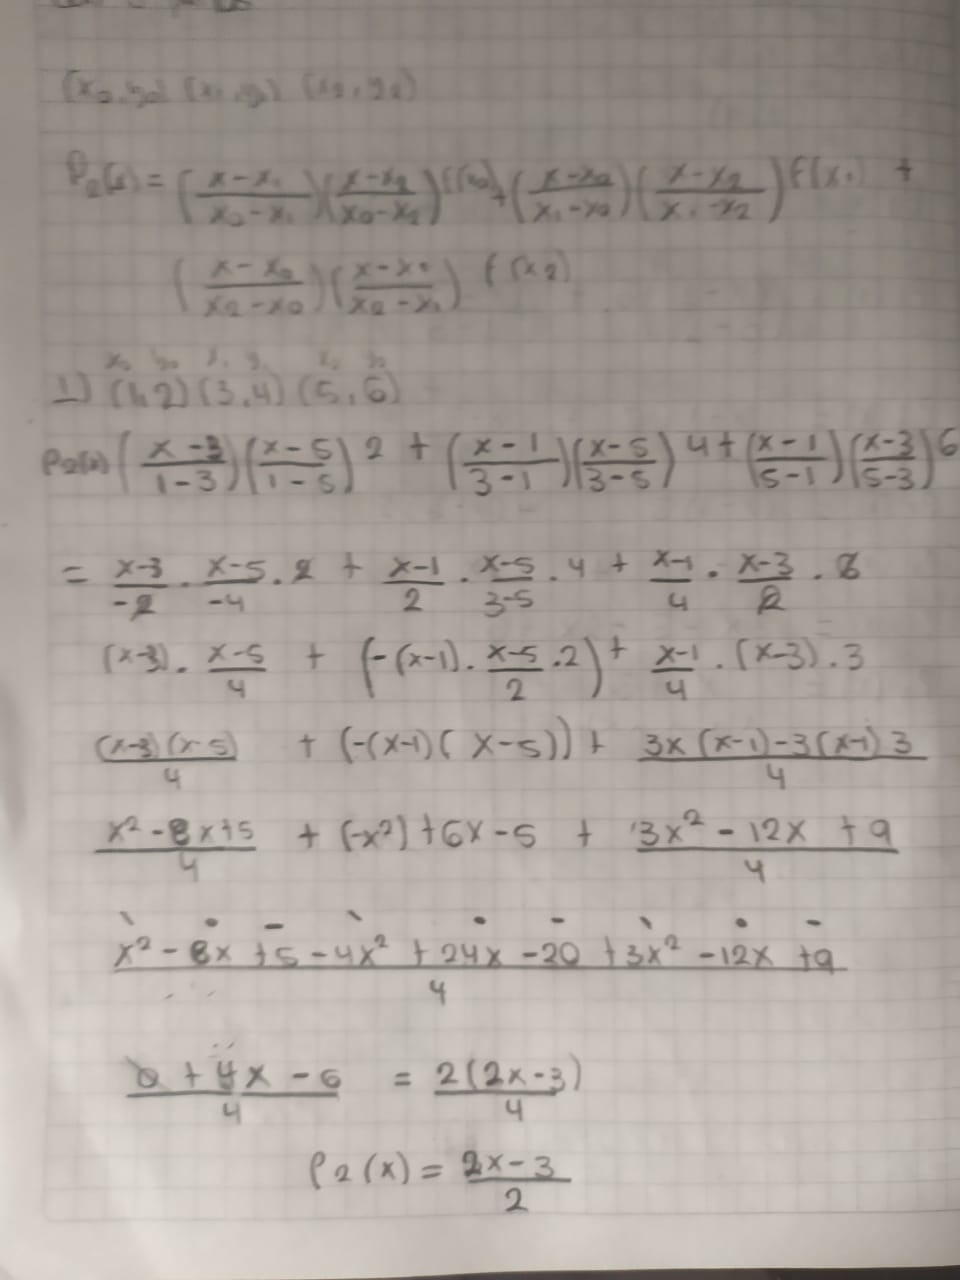 (x0,y0) (x1,y1) (x2,y2)
P2(x) = ((x-x1)/(x0-x1))((x-x2)/(x0-x2)) f(x0) + ((x-x0)/(x1-x0))((x-x2)/(x1-x2)) f(x1) +
((x-x0)/(x2-x0))((x-x1)/(x2-x1)) f(x2)
x0 y0 x1 y1 x2 y2
1) (1,2) (3,4) (5,6)
P2(x) ((x-3)/(1-3))((x-5)/(1-5)) 2 + ((x-1)/(3-1))((x-5)/(3-5)) 4 + ((x-1)/(5-1))((x-3)/(5-3)) 6
= (x-3)/(-2) · (x-5)/(-4) · 2 + (x-1)/2 · (x-5)/(3-5) · 4 + (x-1)/4 · (x-3)/2 ·
(x-3) · (x-5)/4 + (-(x-1) · (x-5)/2 · 2) + (x-1)/4 · (x-3) · 3
(x-3)(x-5)/4 + (-(x-1)(x-5)) + (3x(x-1)-3(x-1)3)/4
(x²-8x+5)/4 + (-x²)+6x-5 + (3x²-12x+9)/4
(x²-8x+5-4x²+24x-20+3x²-12x+9)/4
(0+4x-6)/4 = 2(2x-3)/4
P2(x) = (2x-3)/2